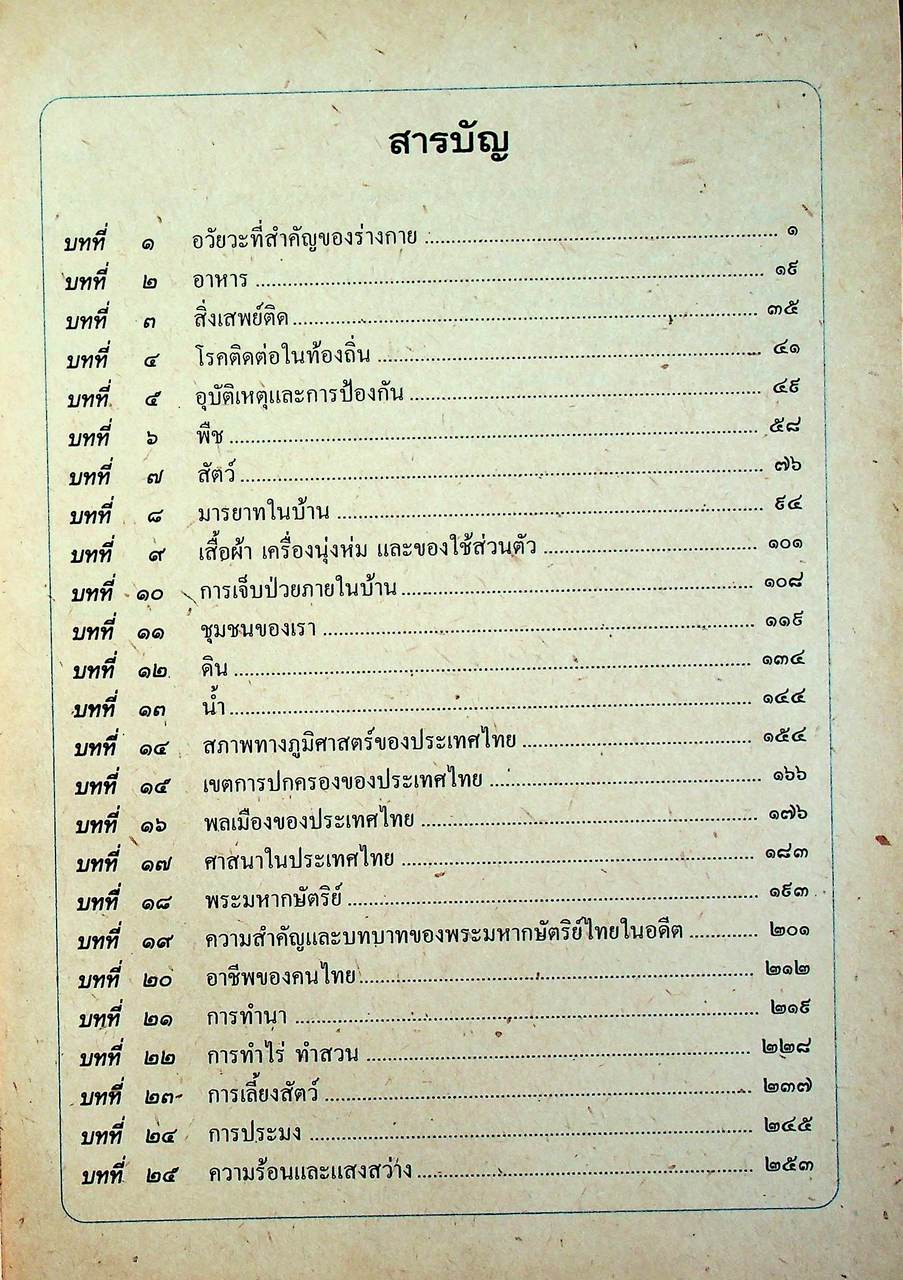 สารบัญ
บทที่ ๑ อวัยวะที่สำคัญของร่างกาย ๑
บทที่ ๒ อาหาร ๑๙
บทที่ ๓ สิ่งเสพย์ติด ๓๕
บทที่ ๔ โรคติดต่อในท้องถิ่น ๔๑
บทที่ ๕ อุบัติเหตุและการป้องกัน ๔๙
บทที่ ๖ พืช ๕๘
บทที่ ๗ สัตว์ ๗๖
บทที่ ๘ มารยาทในบ้าน ๙๔
บทที่ ๙ เสื้อผ้า เครื่องนุ่งห่ม และของใช้ส่วนตัว ๑๐๑
บทที่ ๑๐ การเจ็บป่วยภายในบ้าน ๑๐๘
บทที่ ๑๑ ชุมชนของเรา ๑๑๙
บทที่ ๑๒ ดิน ๑๓๔
บทที่ ๑๓ น้ำ ๑๔๔
บทที่ ๑๔ สภาพทางภูมิศาสตร์ของประเทศไทย ๑๕๔
บทที่ ๑๕ เขตการปกครองของประเทศไทย ๑๖๖
บทที่ ๑๖ พลเมืองของประเทศไทย ๑๗๖
บทที่ ๑๗ ศาสนาในประเทศไทย ๑๘๓
บทที่ ๑๘ พระมหากษัตริย์ ๑๙๓
บทที่ ๑๙ ความสำคัญและบทบาทของพระมหากษัตริย์ไทยในอดีต ๒๐๑
บทที่ ๒๐ อาชีพของคนไทย ๒๑๒
บทที่ ๒๑ การทำนา ๒๑๙
บทที่ ๒๒ การทำไร่ ทำสวน ๒๒๘
บทที่ ๒๓ การเลี้ยงสัตว์ ๒๓๗
บทที่ ๒๔ การประมง ๒๔๕
บทที่ ๒๕ ความร้อนและแสงสว่าง ๒๕๓